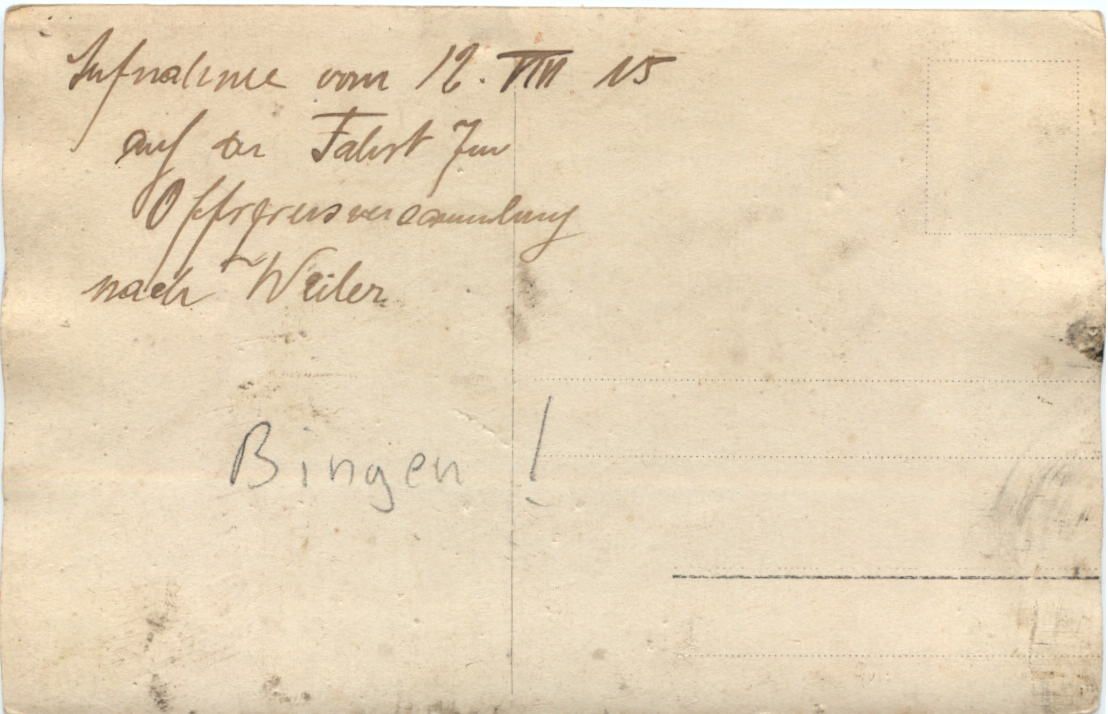 Aufnahme vom 12. VIII 15
auf der Fahrt zur
nach Weiler
Bingen !